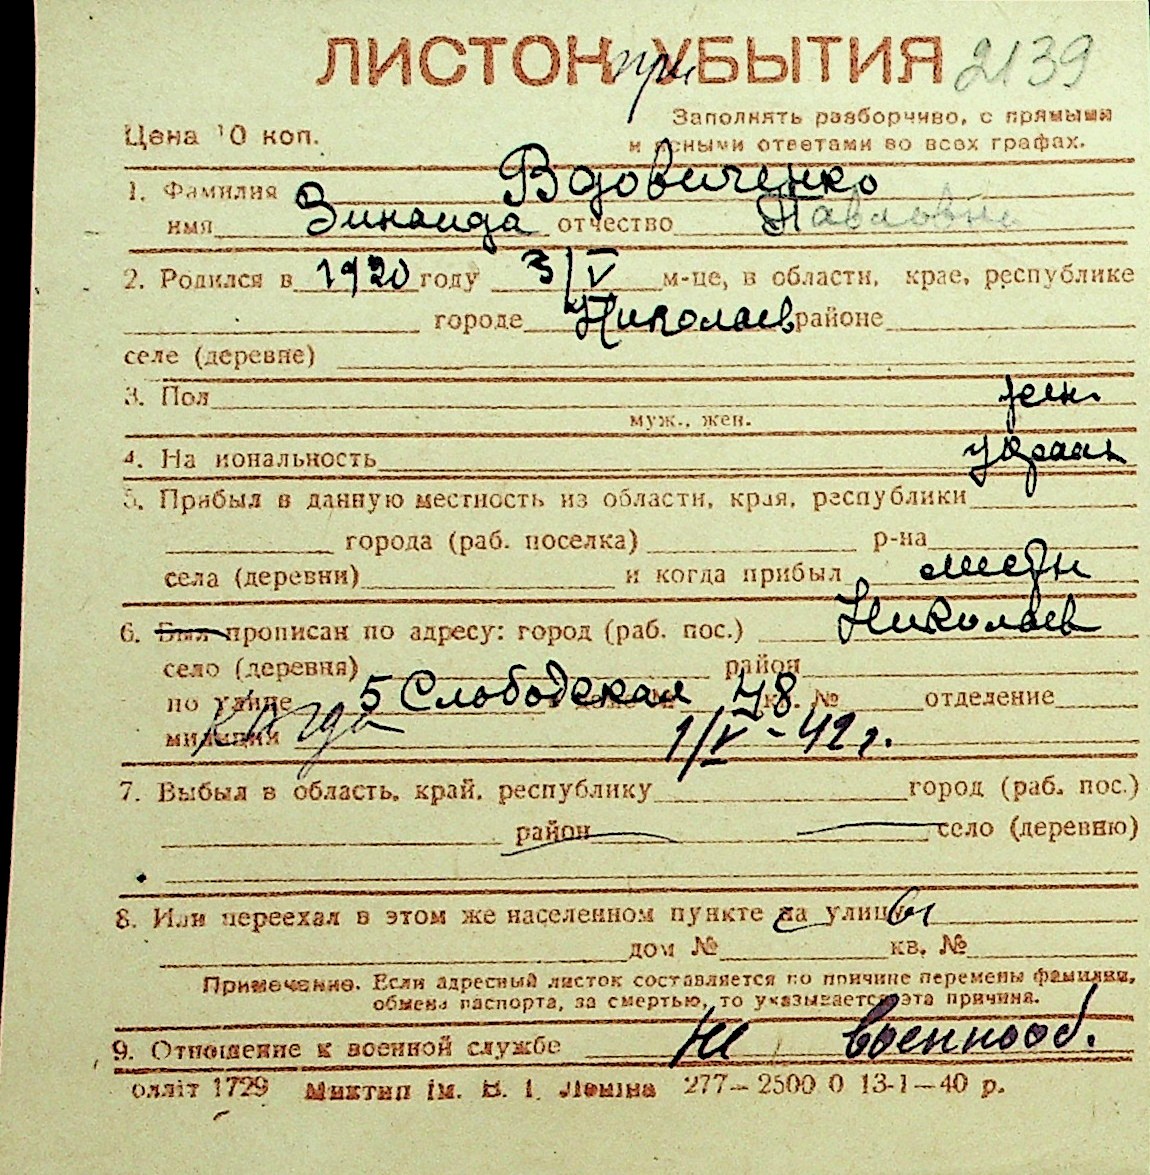 ЛИСТОК при УБЫТИЯ 2139
Заполнять разборчиво, с прямыми
Цена 10 коп.
и ясными ответами во всех графах.
1. Фамилия Вдовиченко
имя Зинаида отчество Павловна
2. Родился в 1920 году 3/V м-це, в области, крае, республике
городе Николаев районе
селе (деревне)
3. Пол жен.
муж., жен.
4. На иональность украин
5. Прибыл в данную местность из области, края, республики
города (раб. поселка) р-на
села (деревни) и когда прибыл местн
6. Был прописан по адресу: город (раб. пос.) Николаев
село (деревня) район
по улице 5 Слободская 48 кв. № отделение
милиции когда 1/V - 42 г.
7. Выбыл в область, край, республику город (раб. пос.)
район село (деревню)
8. Или переехал в этом же населенном пункте на улицу
дом № кв. №
Примечание. Если адресный листок составляется по причине перемены фамилии,
обмена паспорта, за смертью, то указывается эта причина.
9. Отношение к военной службе не военнооб.
олліт 1729 Миктип ім. В. І. Леніна 277—2500 0 13-1—40 р.